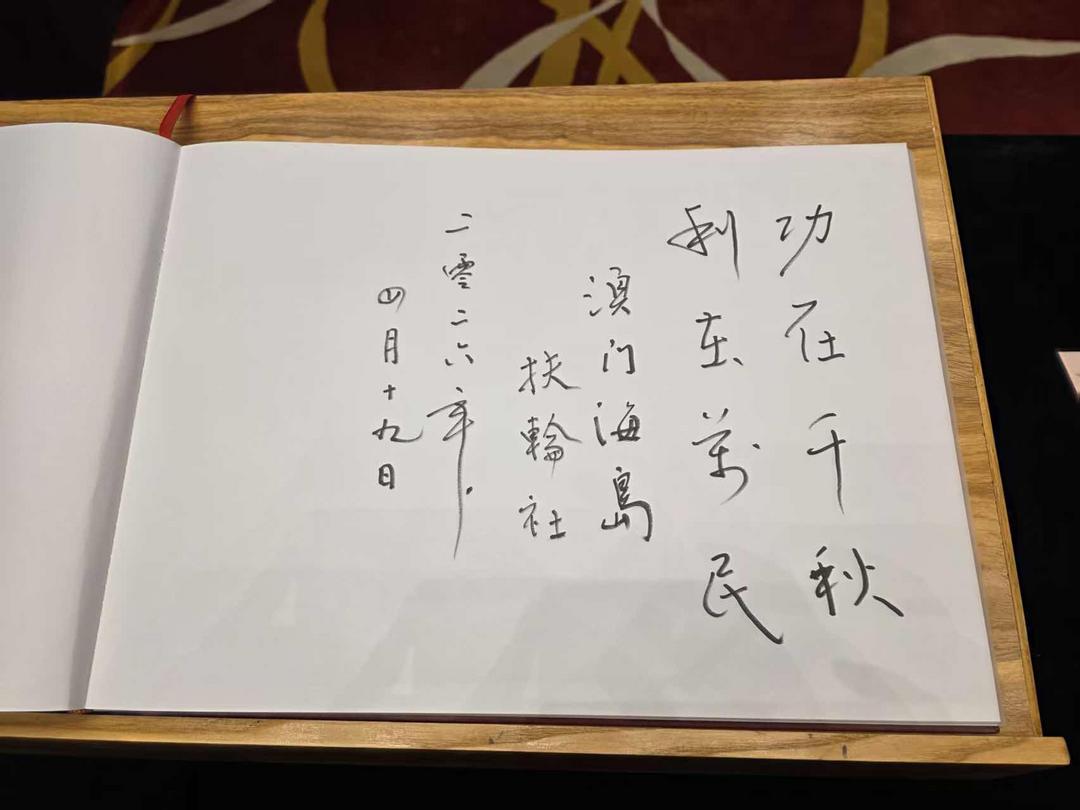 功在千秋
利在萬民
澳门海島
扶輪社
二零二六年.
四月十九日